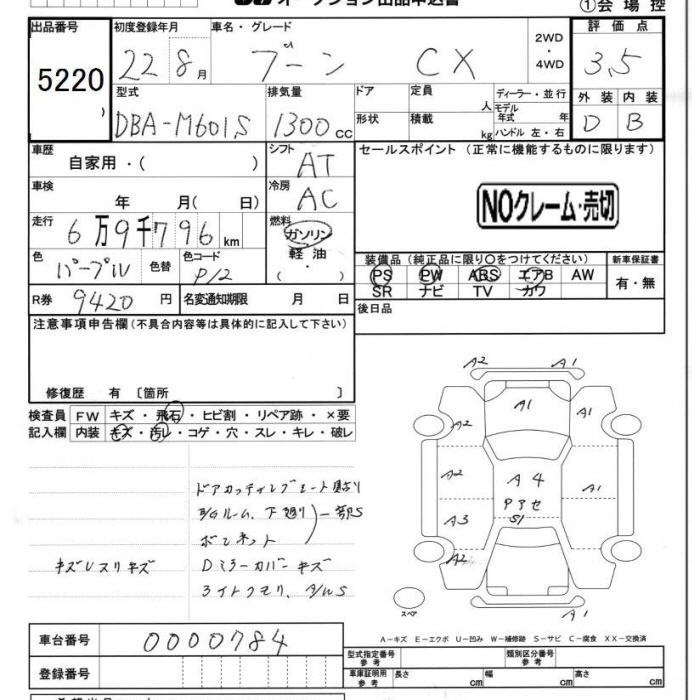 オークション出品申込書
①会場控
出品番号 初度登録年月 車名・グレード 評価点
5220 22 8月 ブーン CX 2WD・4WD 3.5
型式 排気量 ドア 定員 人 ディーラー・並行 外装 内装
DBA-M601S 1300cc 形状 積載 kg モデル年式 年 ハンドル 左・右 D B
車歴 シフト セールスポイント (正常に機能するものに限ります)
自家用・( ) AT
車検 冷房
年 月( 日) AC NOクレーム・売切
走行 燃料
6万9千796km ガソリン
軽油
・( )
色 色替 色コード 装備品(純正品に限り○をつけてください) 新車保証書
パープル P12 PS PW ABS エアB AW 有・無
SR ナビ TV カワ
R券 9420円 名変通知期限 月 日 後日品
注意事項申告欄(不具合内容等は具体的に記入して下さい)
修復歴 有 〔箇所 〕
検査員 FW キズ・飛石・ヒビ割・リペア跡・×要
記入欄 内装 キズ・汚レ・コゲ・穴・スレ・キレ・破レ
A2 A1
A1
A2 A1
A2 A4 A1
アアセ
A3 S1
A2
A1
スペア
下廻り 一部S
ボンネット
キズレスリキズ Dミラーカバーキズ
ライトクモリ
A－キズ E－エクボ U－凹み W－補修跡 S－サビ C－腐食 XX－交換済
車台番号 0000784
型式指定番号 参考 類別区分番号 参考
登録番号 車庫証明用 参考 長さ cm 幅 cm 高さ cm